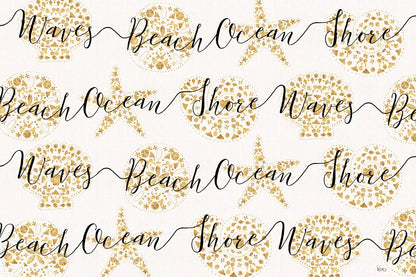 Waves Beach Ocean Shore
Beach Ocean Shore Waves Beach
Waves Beach Ocean Shore
Beach Ocean Shore Waves Beach